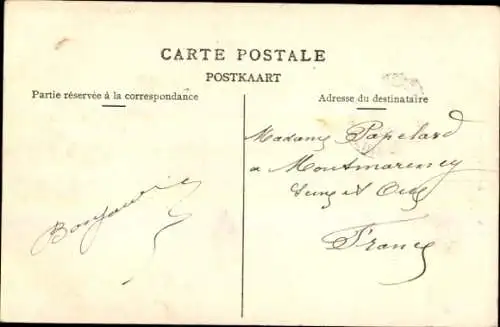 CARTE POSTALE
POSTKAART
Partie réservée à la correspondance
Adresse du destinataire
Madame Papelard
a Montmorency
Seine et Oise
France